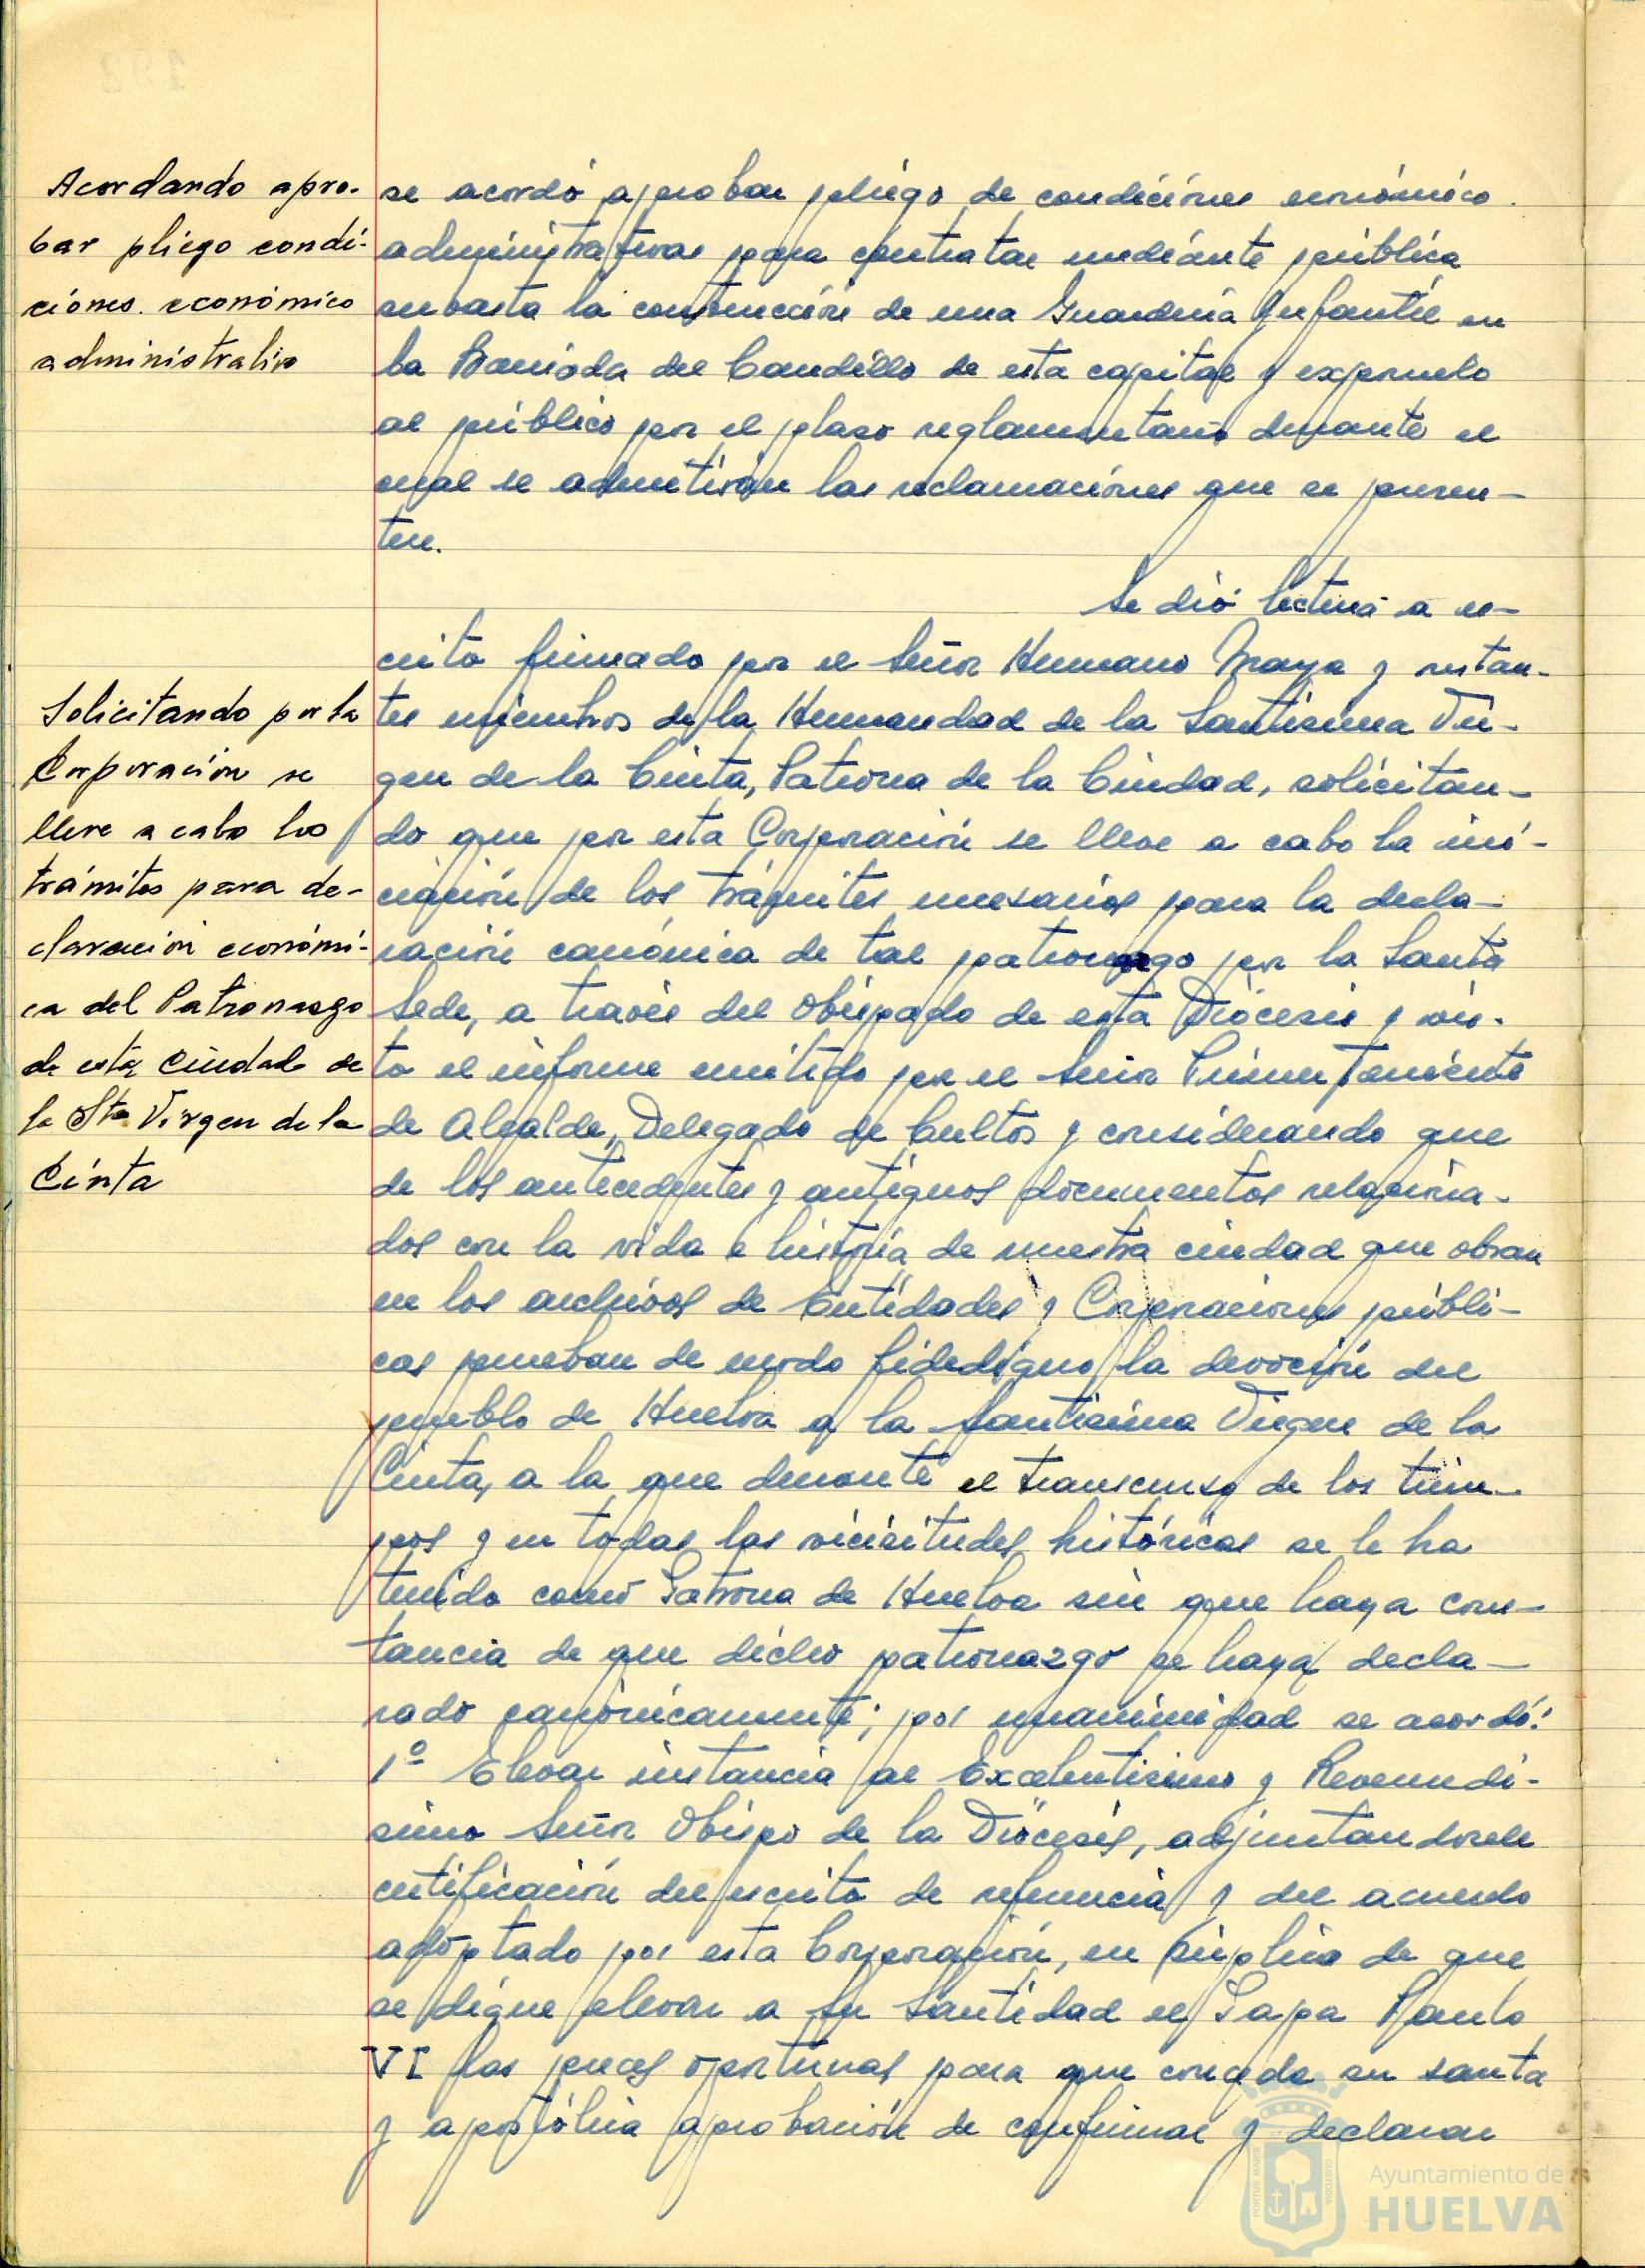 Acordando apro-
bar pliego condi-
ciones. económico
administrativo
se acordó aprobar pliego de condiciones económico
administrativas para contratar mediante pública
subasta la construcción de una Guardería Infantil en
la Barriada del Caudillo de esta capital y exponerlo
al público por el plazo reglamentario durante el
cual se admitirán las reclamaciones que se presen-
ten.
Se dió lectura a es-
crito firmado por el Señor Hermano Maya y restan-
tes miembros de la Hermandad de la Santísima Vir-
gen de la Cinta, Patrona de la Ciudad, solicitan-
do que por esta Corporación se lleve a cabo la ini-
ciación de los trámites necesarios para la decla-
ración canónica de tal patronazgo por la Santa
Sede, a través del Obispado de esta Diócesis y vis-
to el informe emitido por el Señor Primer Teniente
de Alcalde, Delegado de Cultos y considerando que
de los antecedentes y antiguos documentos relaciona-
dos con la vida e historia de nuestra ciudad que obran
en los archivos de Entidades y Corporaciones públi-
cas prueban de modo fidedigno la devoción del
pueblo de Huelva a la Santísima Virgen de la
Cinta, a la que durante el transcurso de los tiem-
pos y en todas las vicisitudes históricas se le ha
tenido como Patrona de Huelva sin que haya cons-
tancia de que dicho patronazgo se haya decla-
rado canónicamente; por unanimidad se acordó:
1º Elevar instancia al Excelentísimo y Reverendí-
simo Señor Obispo de la Diócesis, adjuntandosele
certificación del escrito de referencia y del acuerdo
adoptado por esta Corporación, en súplica de que
se digne elevar a Su Santidad el Papa Paulo
VI las preces oportunas para que conceda su santa
y apostólica aprobación de confirmar y declarar
Solicitando por la
Corporación se
lleve a cabo los
trámites para de-
claración económi-
ca del Patronazgo
de esta Ciudad de
la Sta Virgen de la
Cinta
Ayuntamiento de
HUELVA